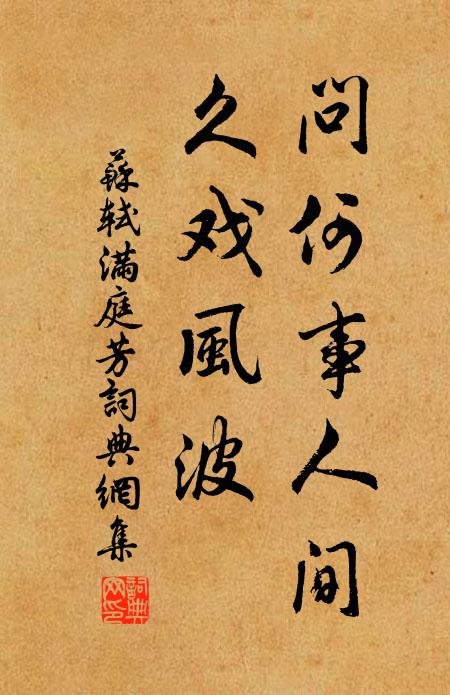 問何事人间
久戏風波
蘇軾满庭芳詞典網集
詞典網印